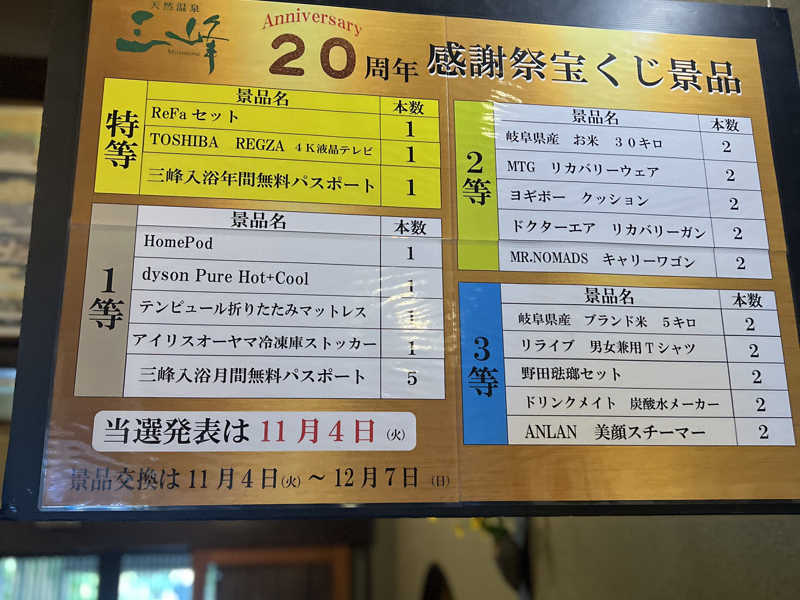 天然温泉
三峰
Anniversary
20周年 感謝祭宝くじ景品
特等
景品名 本数
ReFaセット 1
TOSHIBA REGZA 4K液晶テレビ 1
三峰入浴年間無料パスポート 1
1等
景品名 本数
HomePod 1
dyson Pure Hot+Cool 1
テンピュール折りたたみマットレス 1
アイリスオーヤマ冷凍庫ストッカー 1
三峰入浴月間無料パスポート 5
2等
景品名 本数
岐阜県産 お米 30キロ 2
MTG リカバリーウェア 2
ヨギボー クッション 2
ドクターエア リカバリーガン 2
MR.NOMADS キャリーワゴン 2
3等
景品名 本数
岐阜県産 ブランド米 5キロ 2
リライブ 男女兼用Tシャツ 2
野田琺瑯セット 2
ドリンクメイト 炭酸水メーカー 2
ANLAN 美顔スチーマー 2
当選発表は11月4日(火)
景品交換は11月4日(火)～12月7日(日)